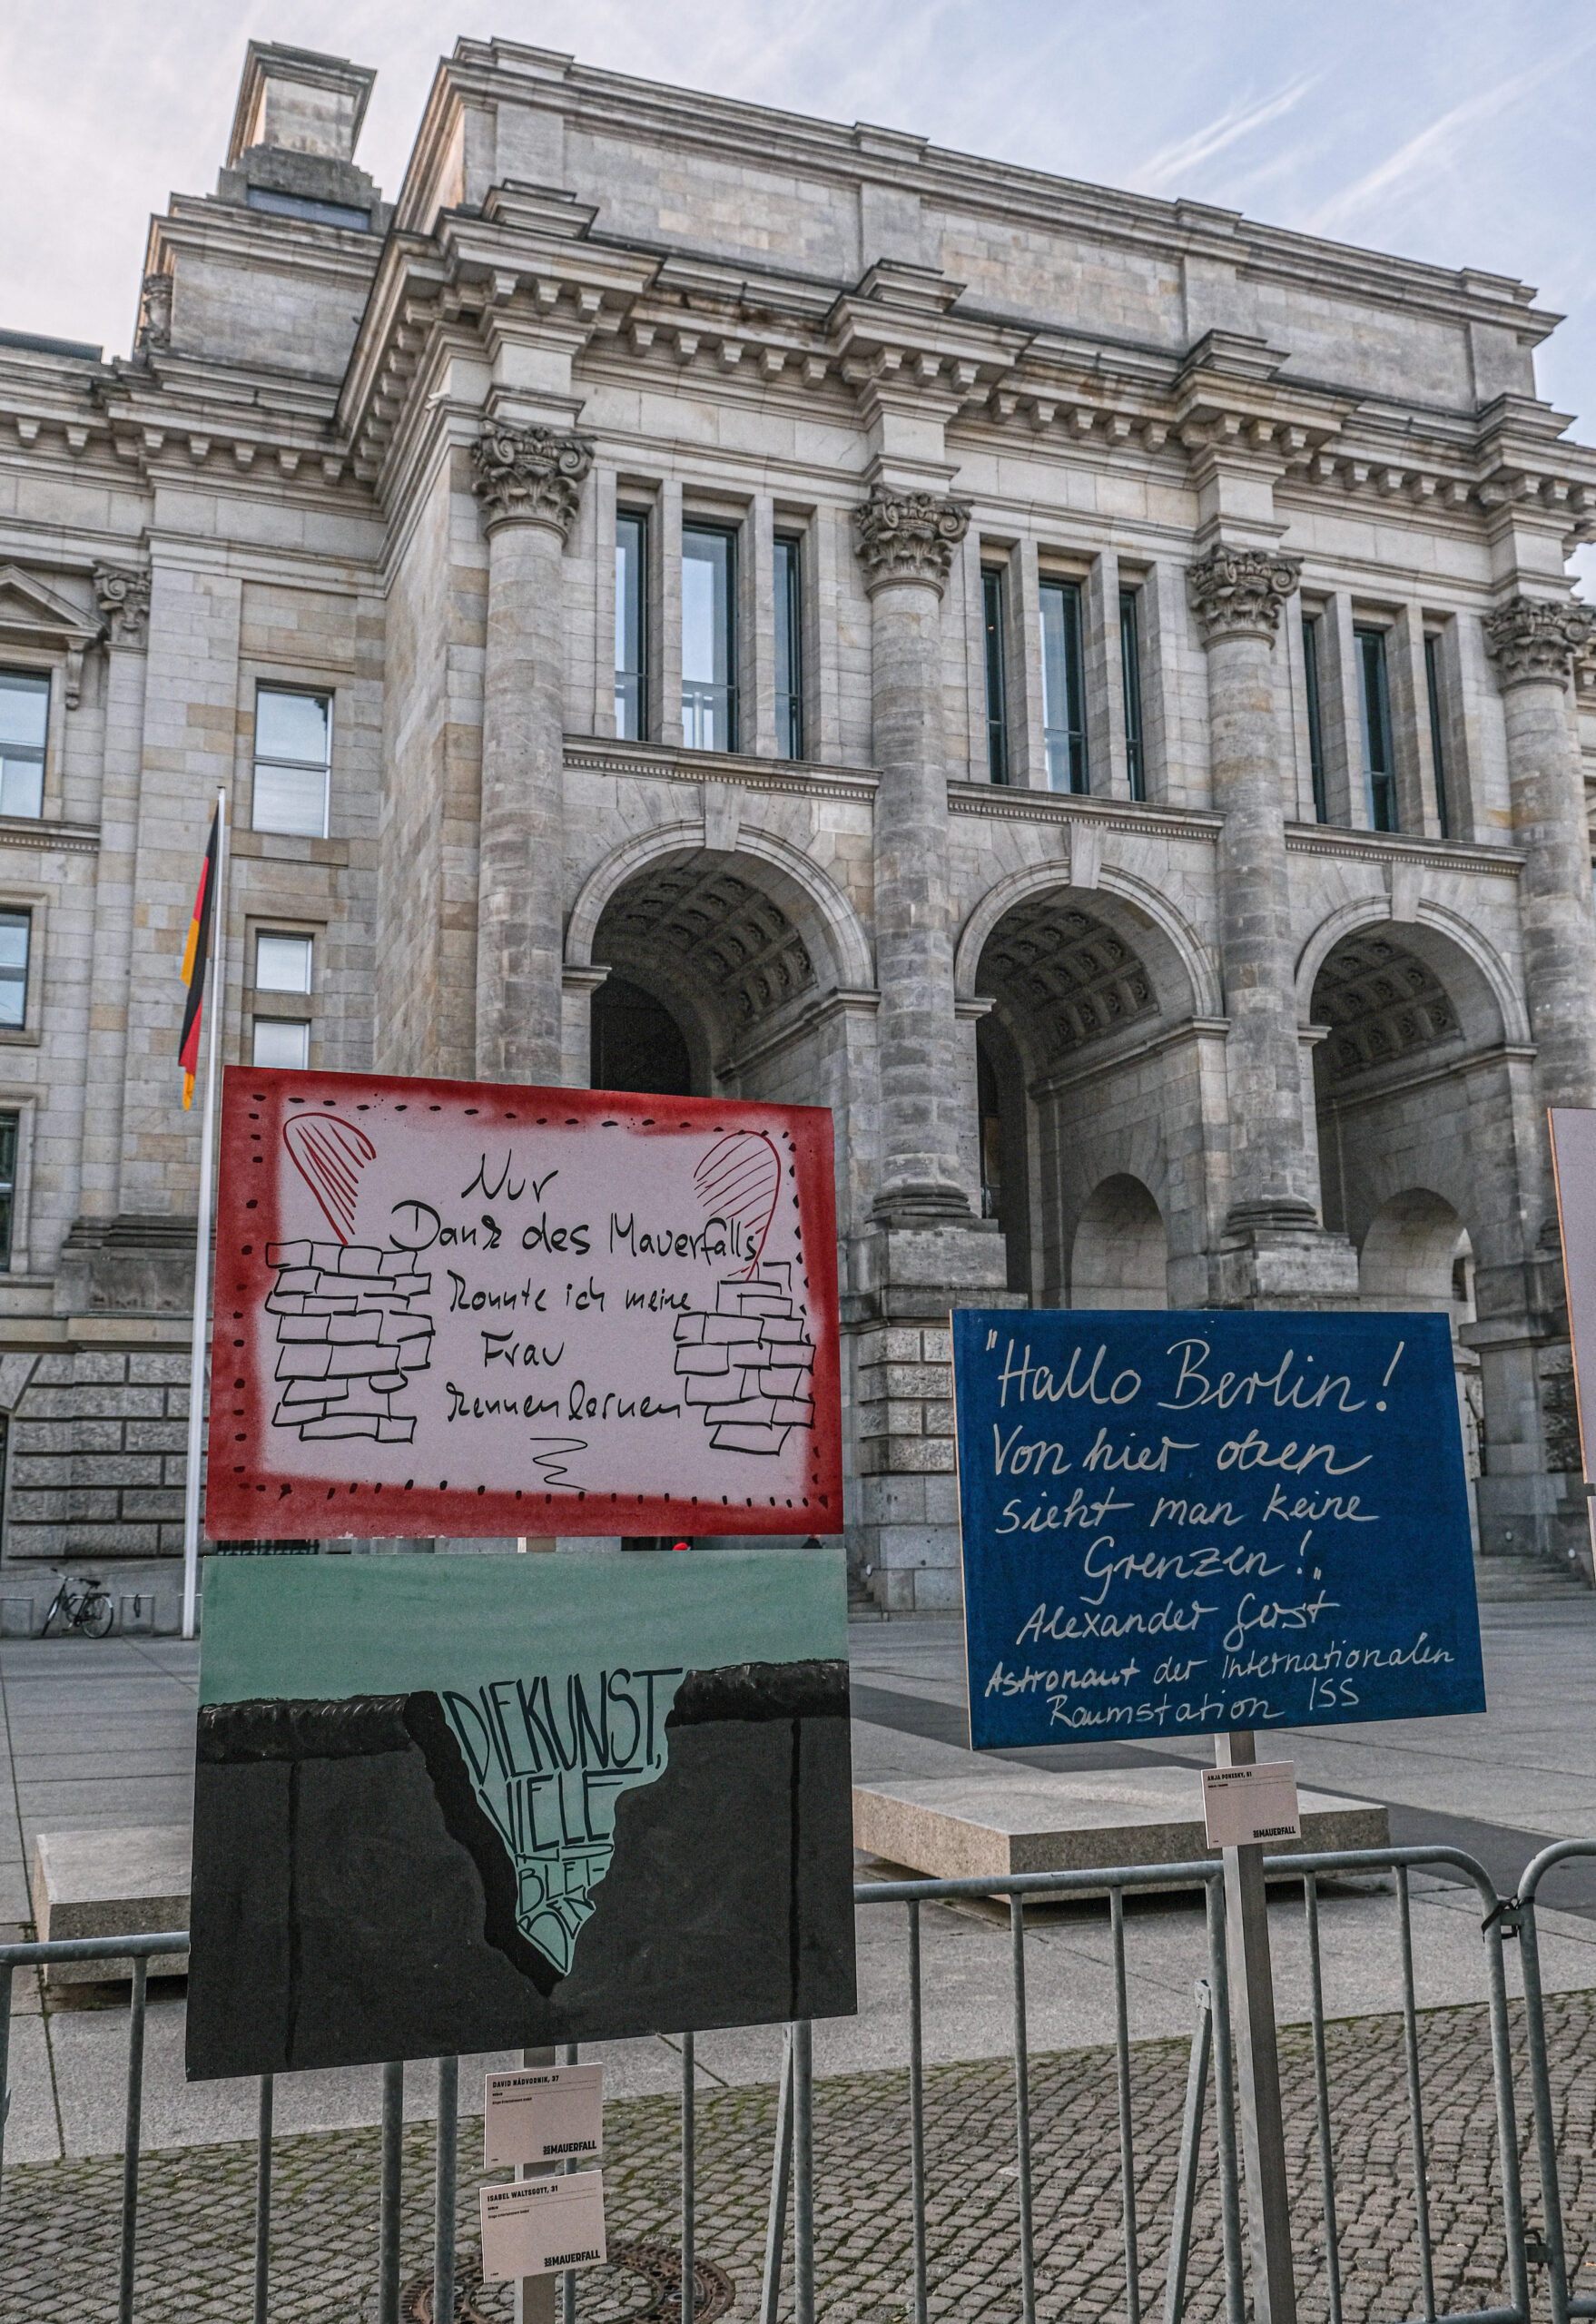 Nur
Dank des Mauerfalls
konnte ich meine
Frau
kennenlernen
DIE KUNST,
VIELE
ZU
BLEI-
BEN
"Hallo Berlin!
Von hier oben
sieht man keine
Grenzen!"
Alexander Gerst
Astronaut der Internationalen
Raumstation ISS
ANJA PONESKY, 51
MAUERFALL
DAVID NÁDVORNIK, 37
MAUERFALL
ISABEL WALTSGOTT, 31
MAUERFALL